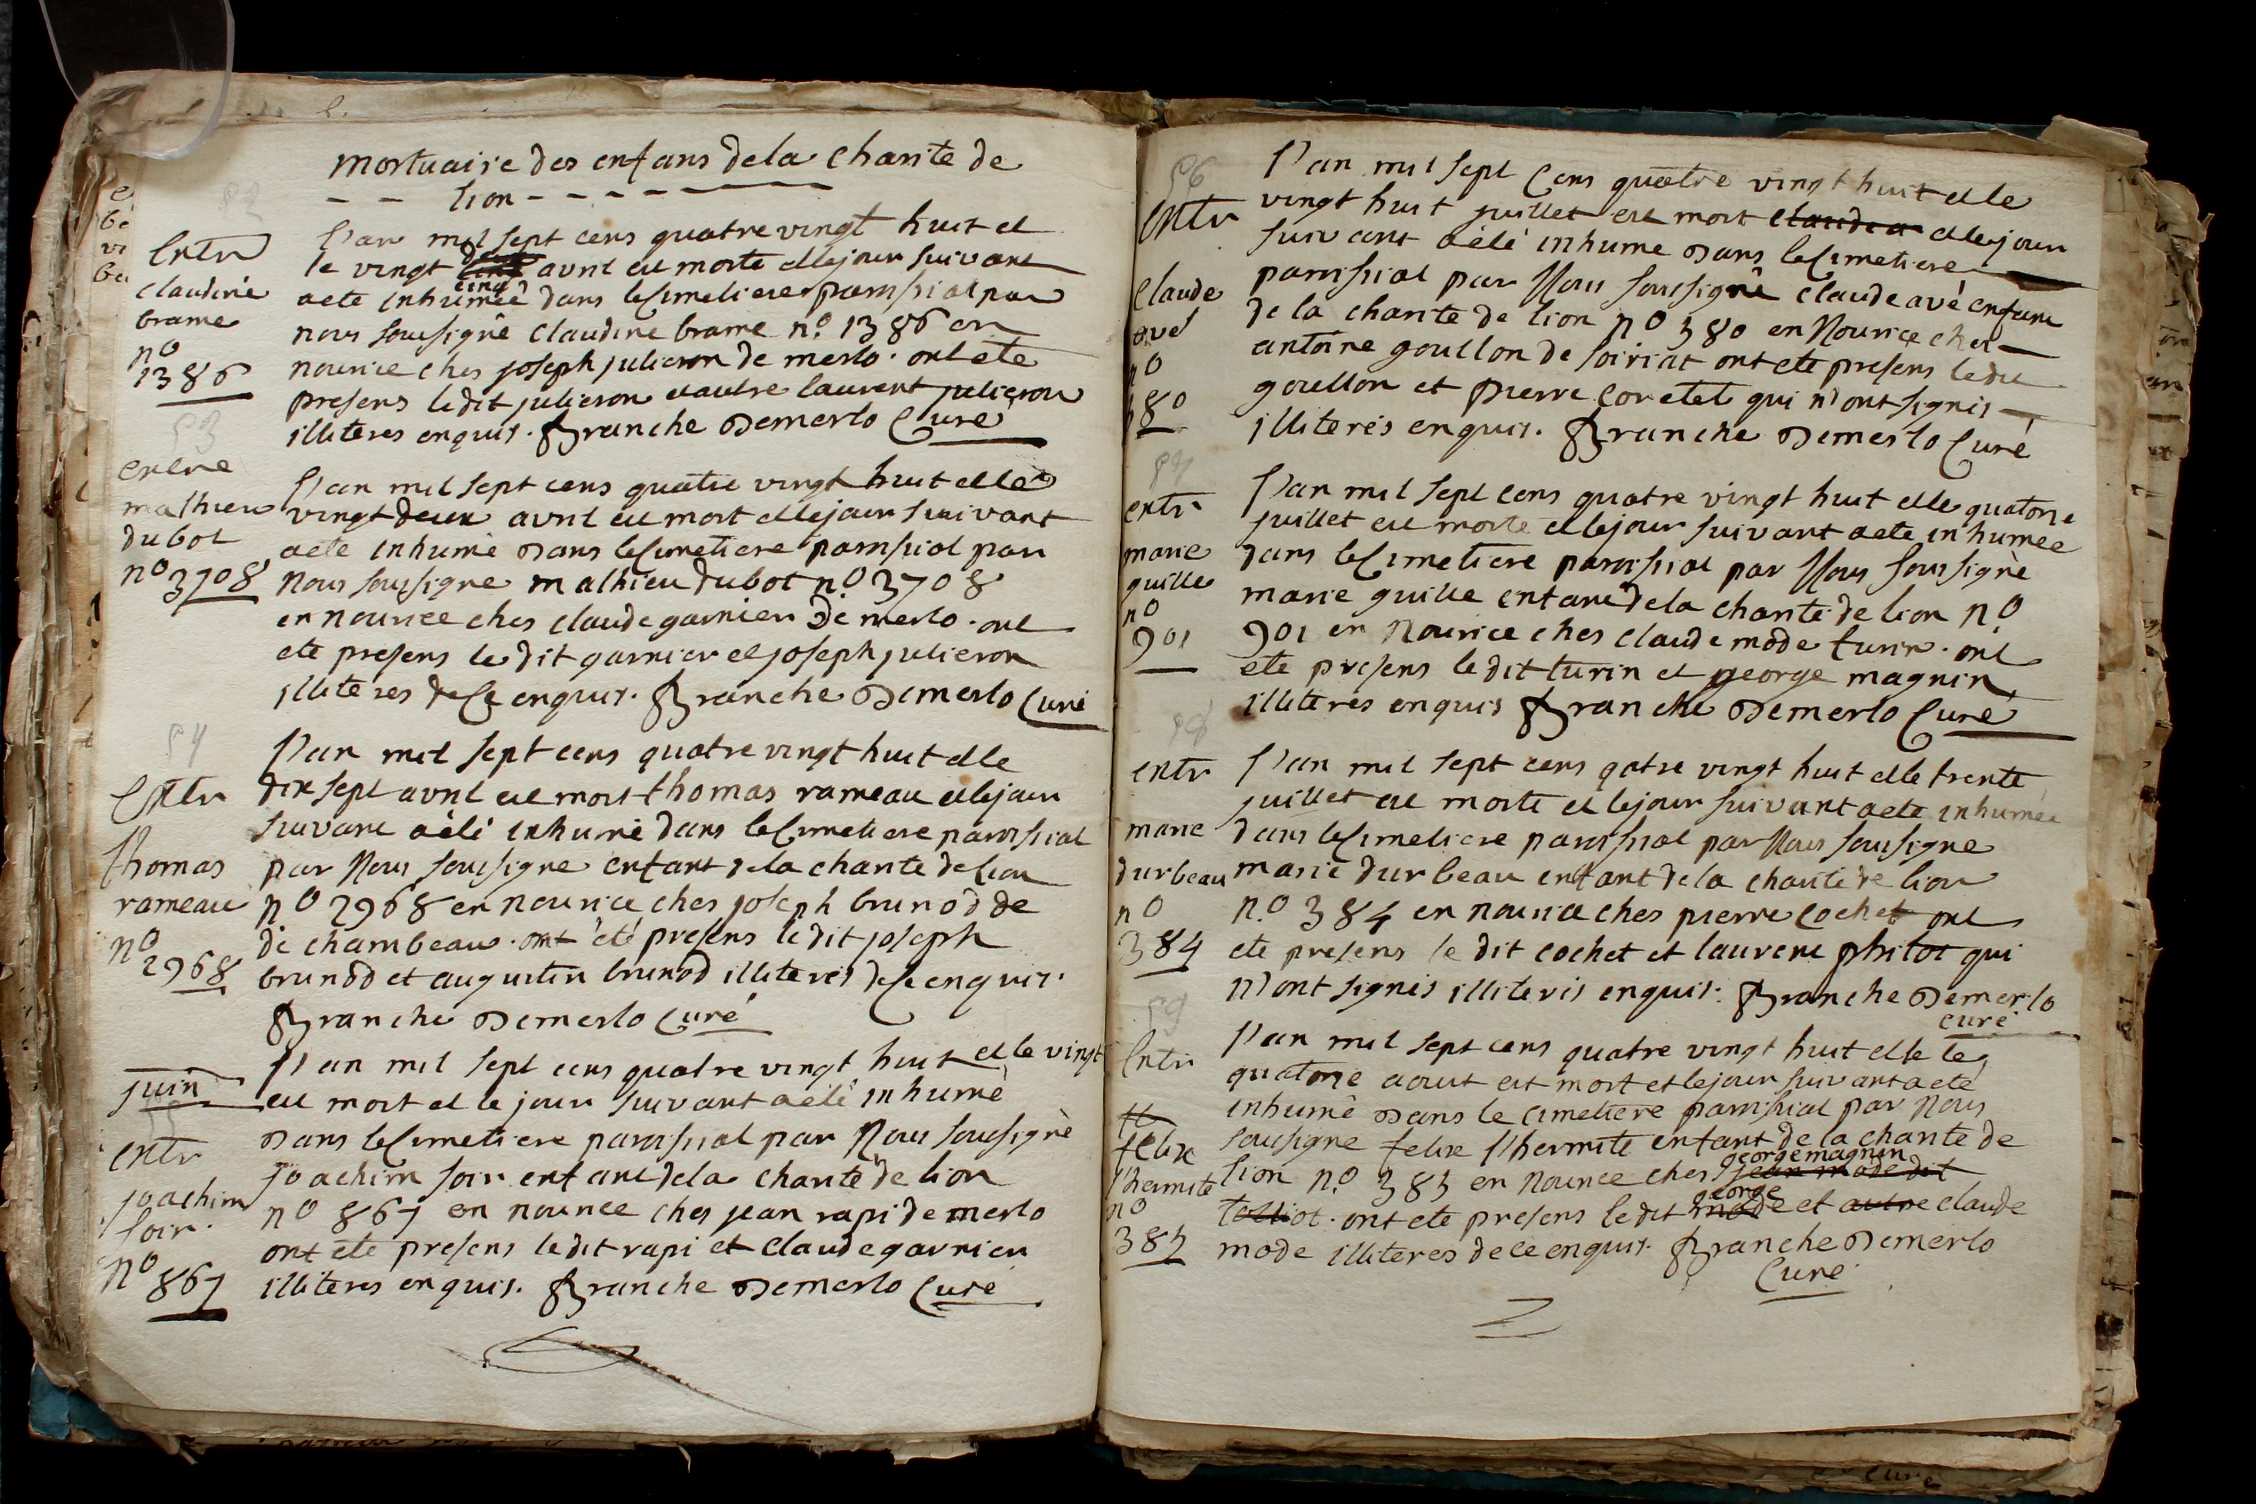 mortuaire des enfans de la charite de
lion
52
Entr
claudine
brame
no
1386
l'an mil sept cens quatre vingt huit et
le vingt cinq avril est morte et le jour suivant
a ete inhumée dans le Cimetiere paroissial par
nous soussigné claudine brame n.o 1386 en
nourice ches joseph julieron de merlo. ont ete
presens le dit julieron et autre laurent julieron
illiteres enquis. Branche De merlo Curé
53
entre
mathieu
dubot
no 3708
l'an mil sept cens quatre vingt huit et le
vingt deux avril est mort et le jour suivant
a ete inhumé dans le Cimetiere paroissial par
Nous soussigne mathieu dubot n.o 3708
en nourice ches claude garnier de merlo. ont
ete presens le dit garnier et joseph julieron
illiteres de Ce enquis. Branche De merlo Curé
54
Entr
thomas
rameau
no
2968
l'an mil sept cens quatre vingt huit et le
dix sept avril est mort thomas rameau et le jour
suivant a été inhumé dans le Cimetiere paroissial
par Nous soussigne enfant de la charite de lion
n.o 2968 en nourice ches joseph brunod de
de chambeau. ont été presens le dit joseph
brunod et augustin brunod illiterés de Ce enquis.
Branche De merlo Curé
juin
entr
joachim
soir.
no 867
l'an mil sept cens quatre vingt huit et le vingt
est mort et le jour suivant a été inhumé
dans le Cimetiere paroissial par Nous soussigné
joachim soir enfant de la charite de lion
no 867 en nourice ches jean rapi de merlo
ont ete presens le dit rapi et claude garnier
illiteres enquis. Branche De merlo Cure
56
Entr
Claude
avé
no
380
l'an mil sept Cens quatre vingt huit et le
vingt huit juillet est mort claude a et le jour
suivant a été inhume dans le Cimetiere
paroissial par Nous soussigné claude avé enfant
de la charite de lion no 380 en Nourice ches
antoine goullon de soiriat ont ete presens le dit
goullon et pierre coretet qui N'ont signés
illiterés enquis. Branche De merlo Curé
57
entr
marie
guille
no
901
l'an mil sept cens quatre vingt huit et le quatorze
juillet est morte et le jour suivant a ete inhumée
dans le Cimetiere paroissial par Nous soussigné
marie guille enfant de la charite de lion no
901 en Nourice ches claude mode turin. ont
ete presens le dit turin et george magnin
illiteres enquis Branche De merlo Curé
58
entr
marie
durbeau
no
384
l'an mil sept cens qatre vingt huit et le trente
juillet est morte et le jour suivant a ete inhumée
dans le Cimetiere paroissial par Nous soussigne
marie durbeau enfant de la charité de lion
n.o 384 en nourice ches pierre cochet ont
ete presens le dit cochet et laurent philot qui
N'ont signés illiterés enquis. Branche De merlo
curé
59
Entr
felix
l'hermite
no
383
l'an mil sept cens quatre vingt huit et le le
quatorze aoust est mort et le jour suivant a eté
inhumé dans le cimetiere paroissial par Nous
soussigne felix l'hermite enfant de la charite de
george magnin
lion n.o 383 en Nourice ches jean mode dit
george
ont ete presens le dit mode et autre claude
mode illiteres de ce enquis. Branche De merlo
Curé